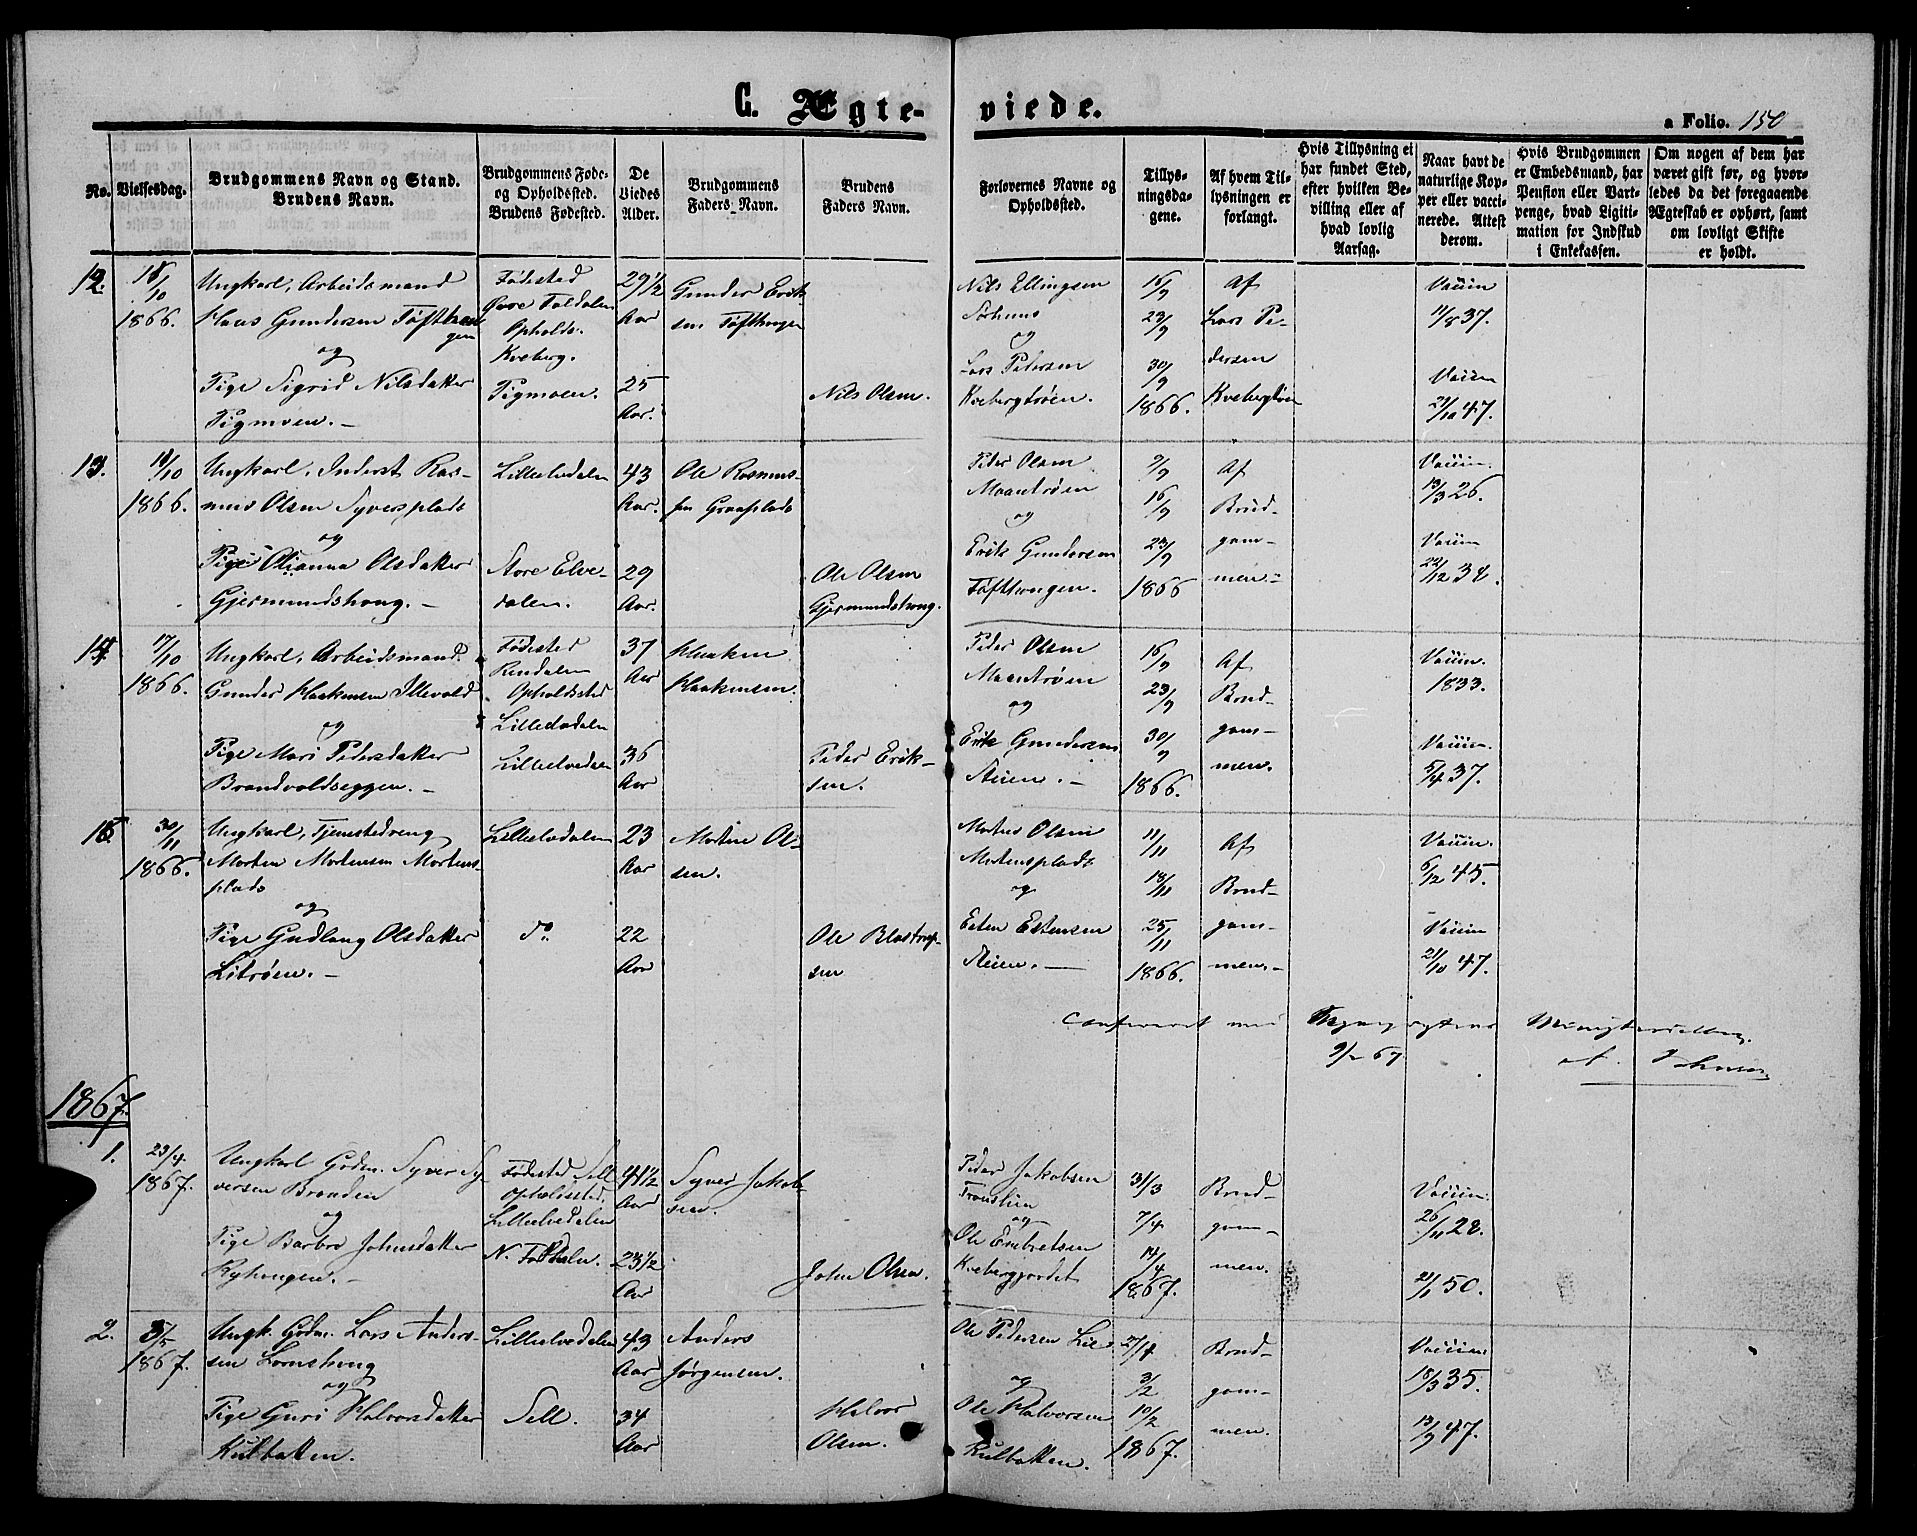 C. Ægte-
viede.
a Folio. 150
No.
Vielsesdag.
Brudgommens Navn og Stand.
Brudens Navn.
Brudgommens Føde-
og Opholdssted.
Brudens Fødested.
De
Viedes
Alder.
Brudgommens
Faders Navn.
Brudens
Faders Navn.
Forlovernes Navne og
Opholdssted.
Tillys-
ningsda-
gene.
Af hvem Til-
lysningen er
forlangt.
Hvis Tillysning ei
har fundet Sted,
efter hvilken Be-
villing eller af
hvad lovlig
Aarsag.
Naar havt de
naturlige Kop-
per eller vacci-
nerede. Attest
derom.
Hvis Brudgommen
er Embedsmand, har
Pension eller Vart-
penge, hvad Ligiti-
mation for Indskud
i Enkekassen.
Om nogen af dem har
været gift før, og hvor-
ledes da det foregaaende
Ægteskab er ophørt, samt
om lovligt Skifte
er holdt.
12.
/10
1866.
Ungkarl, Arbeidsmand
Hans Gundersen Tøfthau-
gen
og
Pige Sigrid Nilsdatter
Tigmoen.-
Fødested
Øvre Foldalen
Opholds.
Kveberg.
Tigmoen.
29 1/2
Aar
25
Aar.
Gunder Erik
sen Tøfthaugen
Nils Olsen.
Nils Ellingsen
Sørhuus
og
Lars Petersen
Kvebergtrøen.
16/9
23/9
30/9
1866.
Af
Lars Pe-
dersen
Kvebergtrøen
Vaccin
11/8 37.
Vaccin
21/10 47.
13.
/10
1866.
Ungkarl, Inderst Ras-
mus Olsen Syversplads
og
Pige Olianna Olsdatter
Gjermundshoug.-
Lilleelvedalen
Store Elve-
dalen.
43
Aar.
29
Aar.
Ole Rasmus-
sen Graaplads
Ole Olsen
Gjermundshoug.
Peder Olsen
Maantrøen
og
Erik Gundersen
Tøfthaugen.
9/9
16/9
23/9
1866
Af
Brud-
gom-
men-
Vaccin.
13/3 26.
Vaccin
22/12 38.
14.
17/10
1866.
Ungkarl, Arbeidsmand.
Gunder Haakensen Illevold
og
Pige Mari Pedersdatter
Brandvoldseggen.-
Fødested
Rendalen
Opholdssted
Lilleelvdalen
Lilleelvedalen
37
Aar
36
Aar
Haaken
Haakensen.
Peder Erik-
sen.
Peder Olsen
Maantrøen
og
Erik Gundersen
Steien.-
16/9
23/9
30/9
1866.
Af
Brud-
gom-
men.
Vaccin.
1833.
Vaccin.
5/4 37.
15.
30/11
1866.
Ungkarl, Tjenestedreng
Morten Mortensen Mortens-
plads
og
Pige Gudlaug Olsdatter
Litrøen.-
Lilleelvdalen
do
23
Aar
22
Aar
Morten Ol-
sen.
Ole
sen
Morten Olsen
Mortensplads
og
Esten Estensen
Steien.-
11/11
18/11
25/11
1866.
Af
Brud-
gom-
men.-
Vaccin.
6/12 45.
Vaccin
21/10 47.
Confereret med
67
1867.
1.
23/4
1867.
Ungkarl Gdm. Syver Sy-
versen Branden
og
Pige Barbro Johnsdatter
Ryhaugen.-
Fødested Sell
Opholdssted.
Lilleelvedalen
N. Foldalen.
41 1/2
Aar
23 1/2
Aar
Syver Jakob-
sen.
John Olsen.
Peder Jakobsen
Tronslien
og
Ole Embretsen
Kvebergjordet
31/3
7/4
14/4
1867.
Brud-
gom-
men.
Vaccin.
26/11 28.
21/1 50.
2.
3/5
1867.
Ungk. Gdm. Lars Anders-
sen
og
Pige Guri Halvorsdatter
Kulbakken.
Lilleelvedalen
Sell.
43
Aar
34
Aar
Anders
Jørgensen.
Halvor
Olsen.
Ole Pedersen Lie
og
Ole Halvorsen
Kulbakken.
27/1
3/2
10/2
1867.
Brud-
gom-
men.
Vaccin.
18/3 35.
13/9 47.